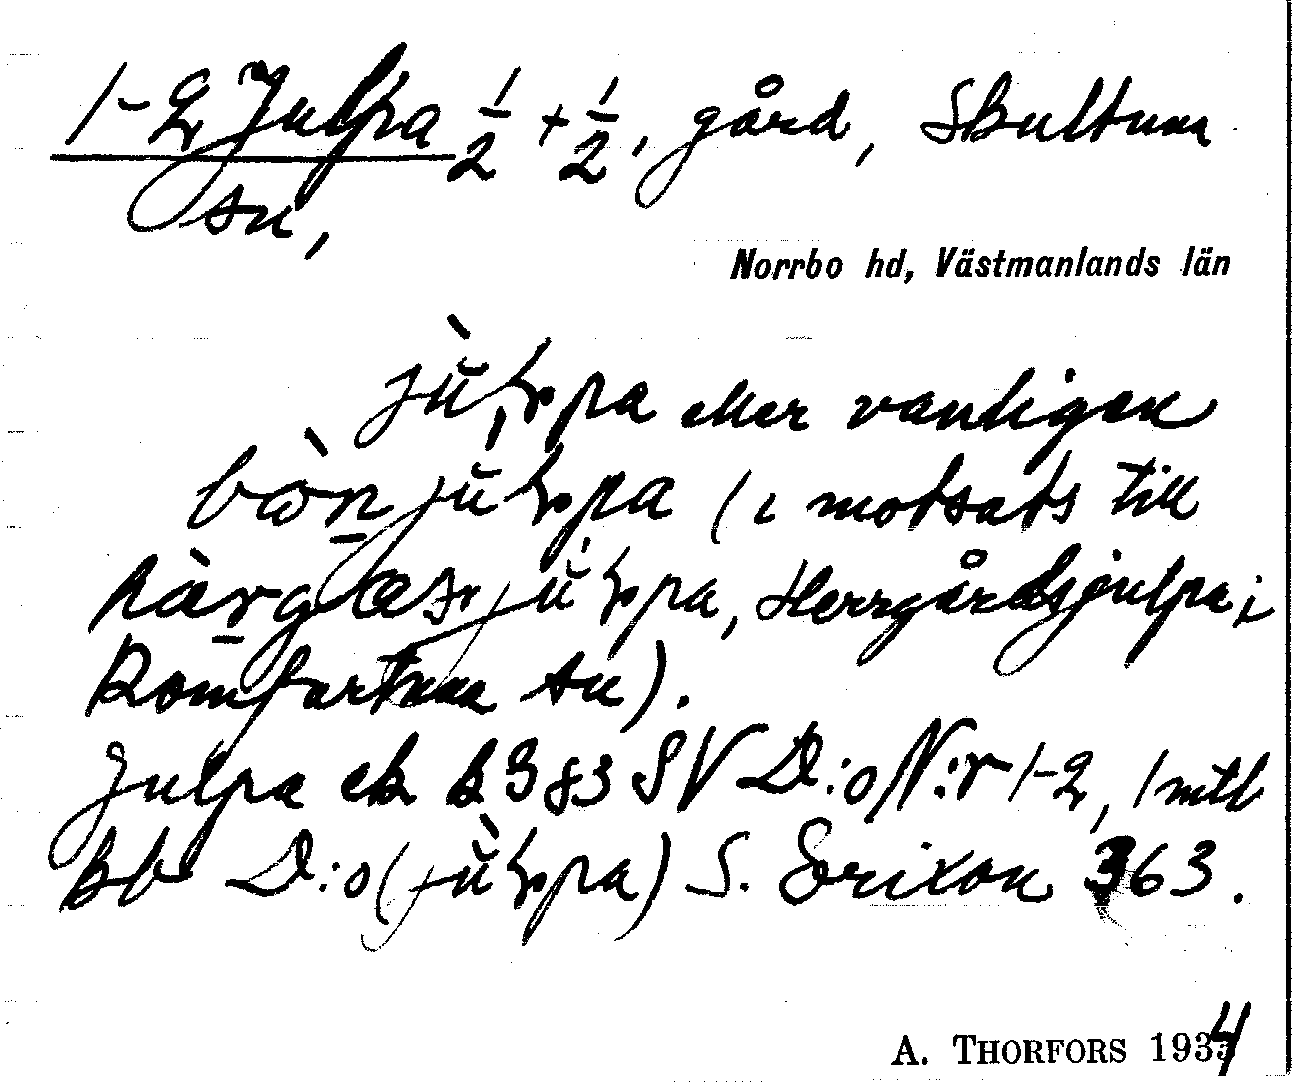 1-2 Julpa 1/2 + 1/2, gård, Skultuna
sn,
Norrbo hd, Västmanlands län
eller vanligen
(i motsats till
Herrgårdsjulpa i
Romfartuna sn).
Julpa ek k 383 SV D:o N:r 1-2, 1 mtl
kb D:o S. Erixon 363.
A. THORFORS 1934